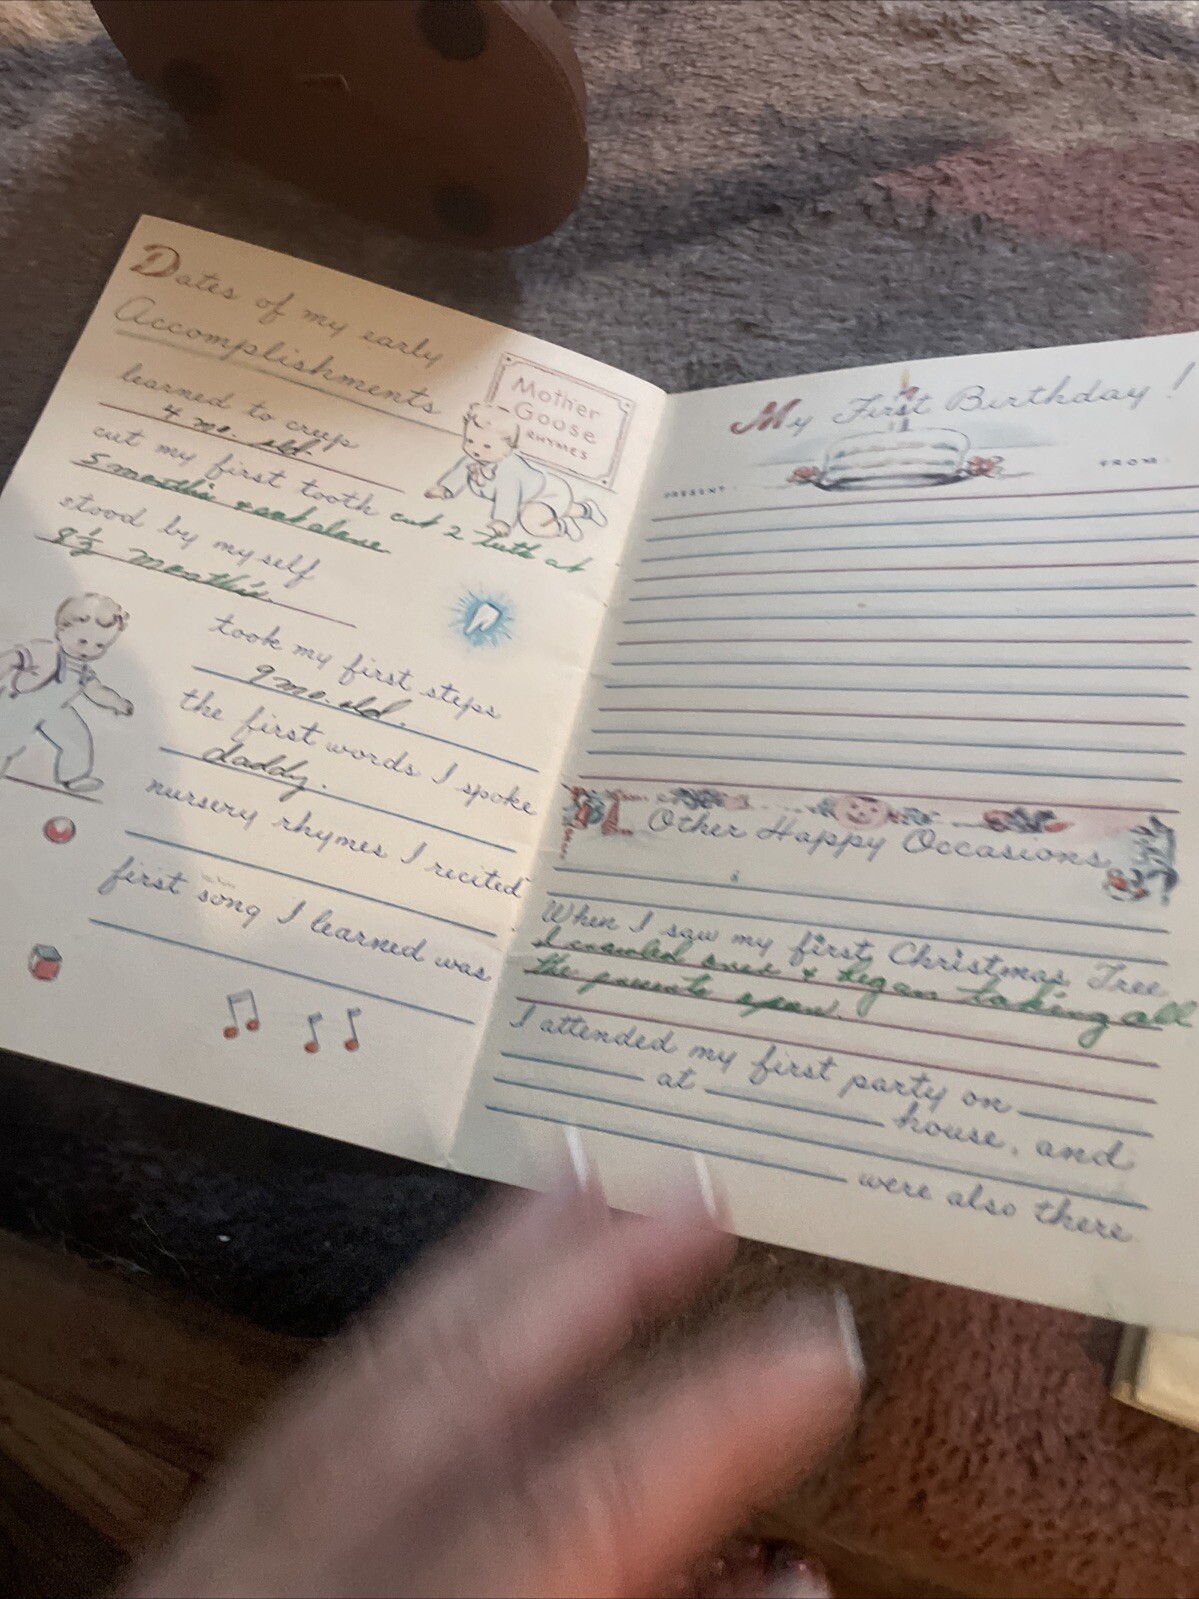 Dates of my early
Accomplishments
Mother
Goose
RHYMES
learned to creep
4 mo. old.
cut my first tooth cut 2 teeth at
5 months
stood by myself
8½ months.
took my first steps
9 mo. old.
the first words I spoke
daddy.
nursery rhymes I recited
first song I learned was
My First Birthday!
PRESENT FROM
Other Happy Occasions
When I saw my first Christmas Tree
I crawled over & began taking all
the presents open.
I attended my first party on
at house, and
were also there